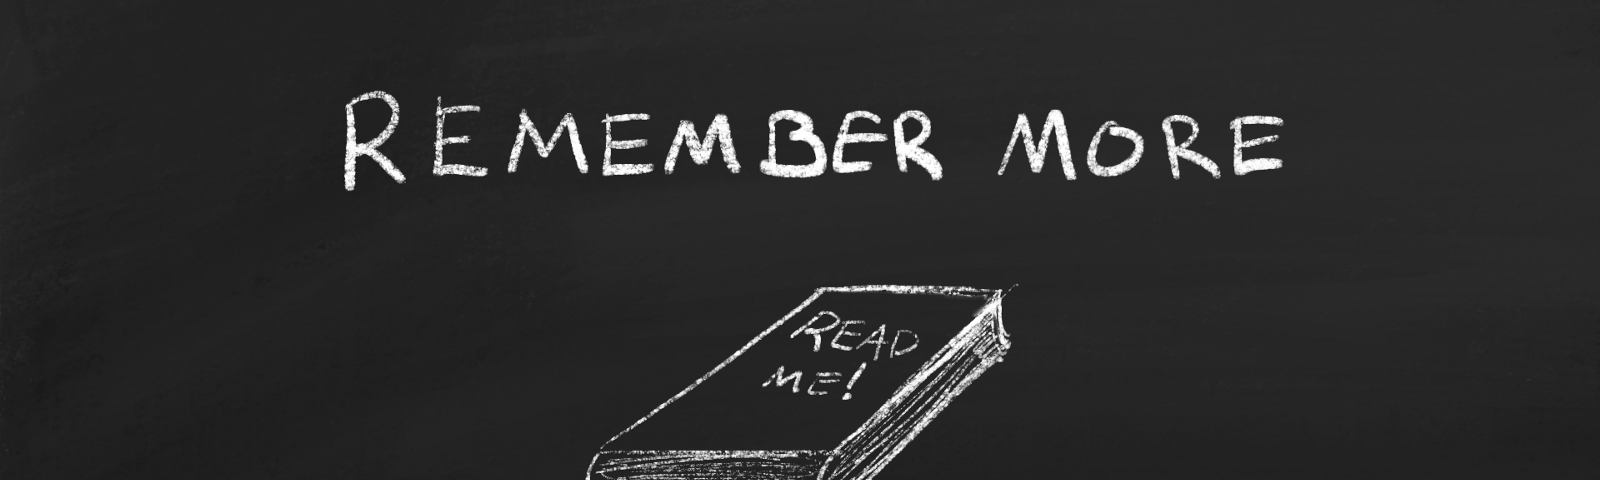 REMEMBER MORE
READ
ME!